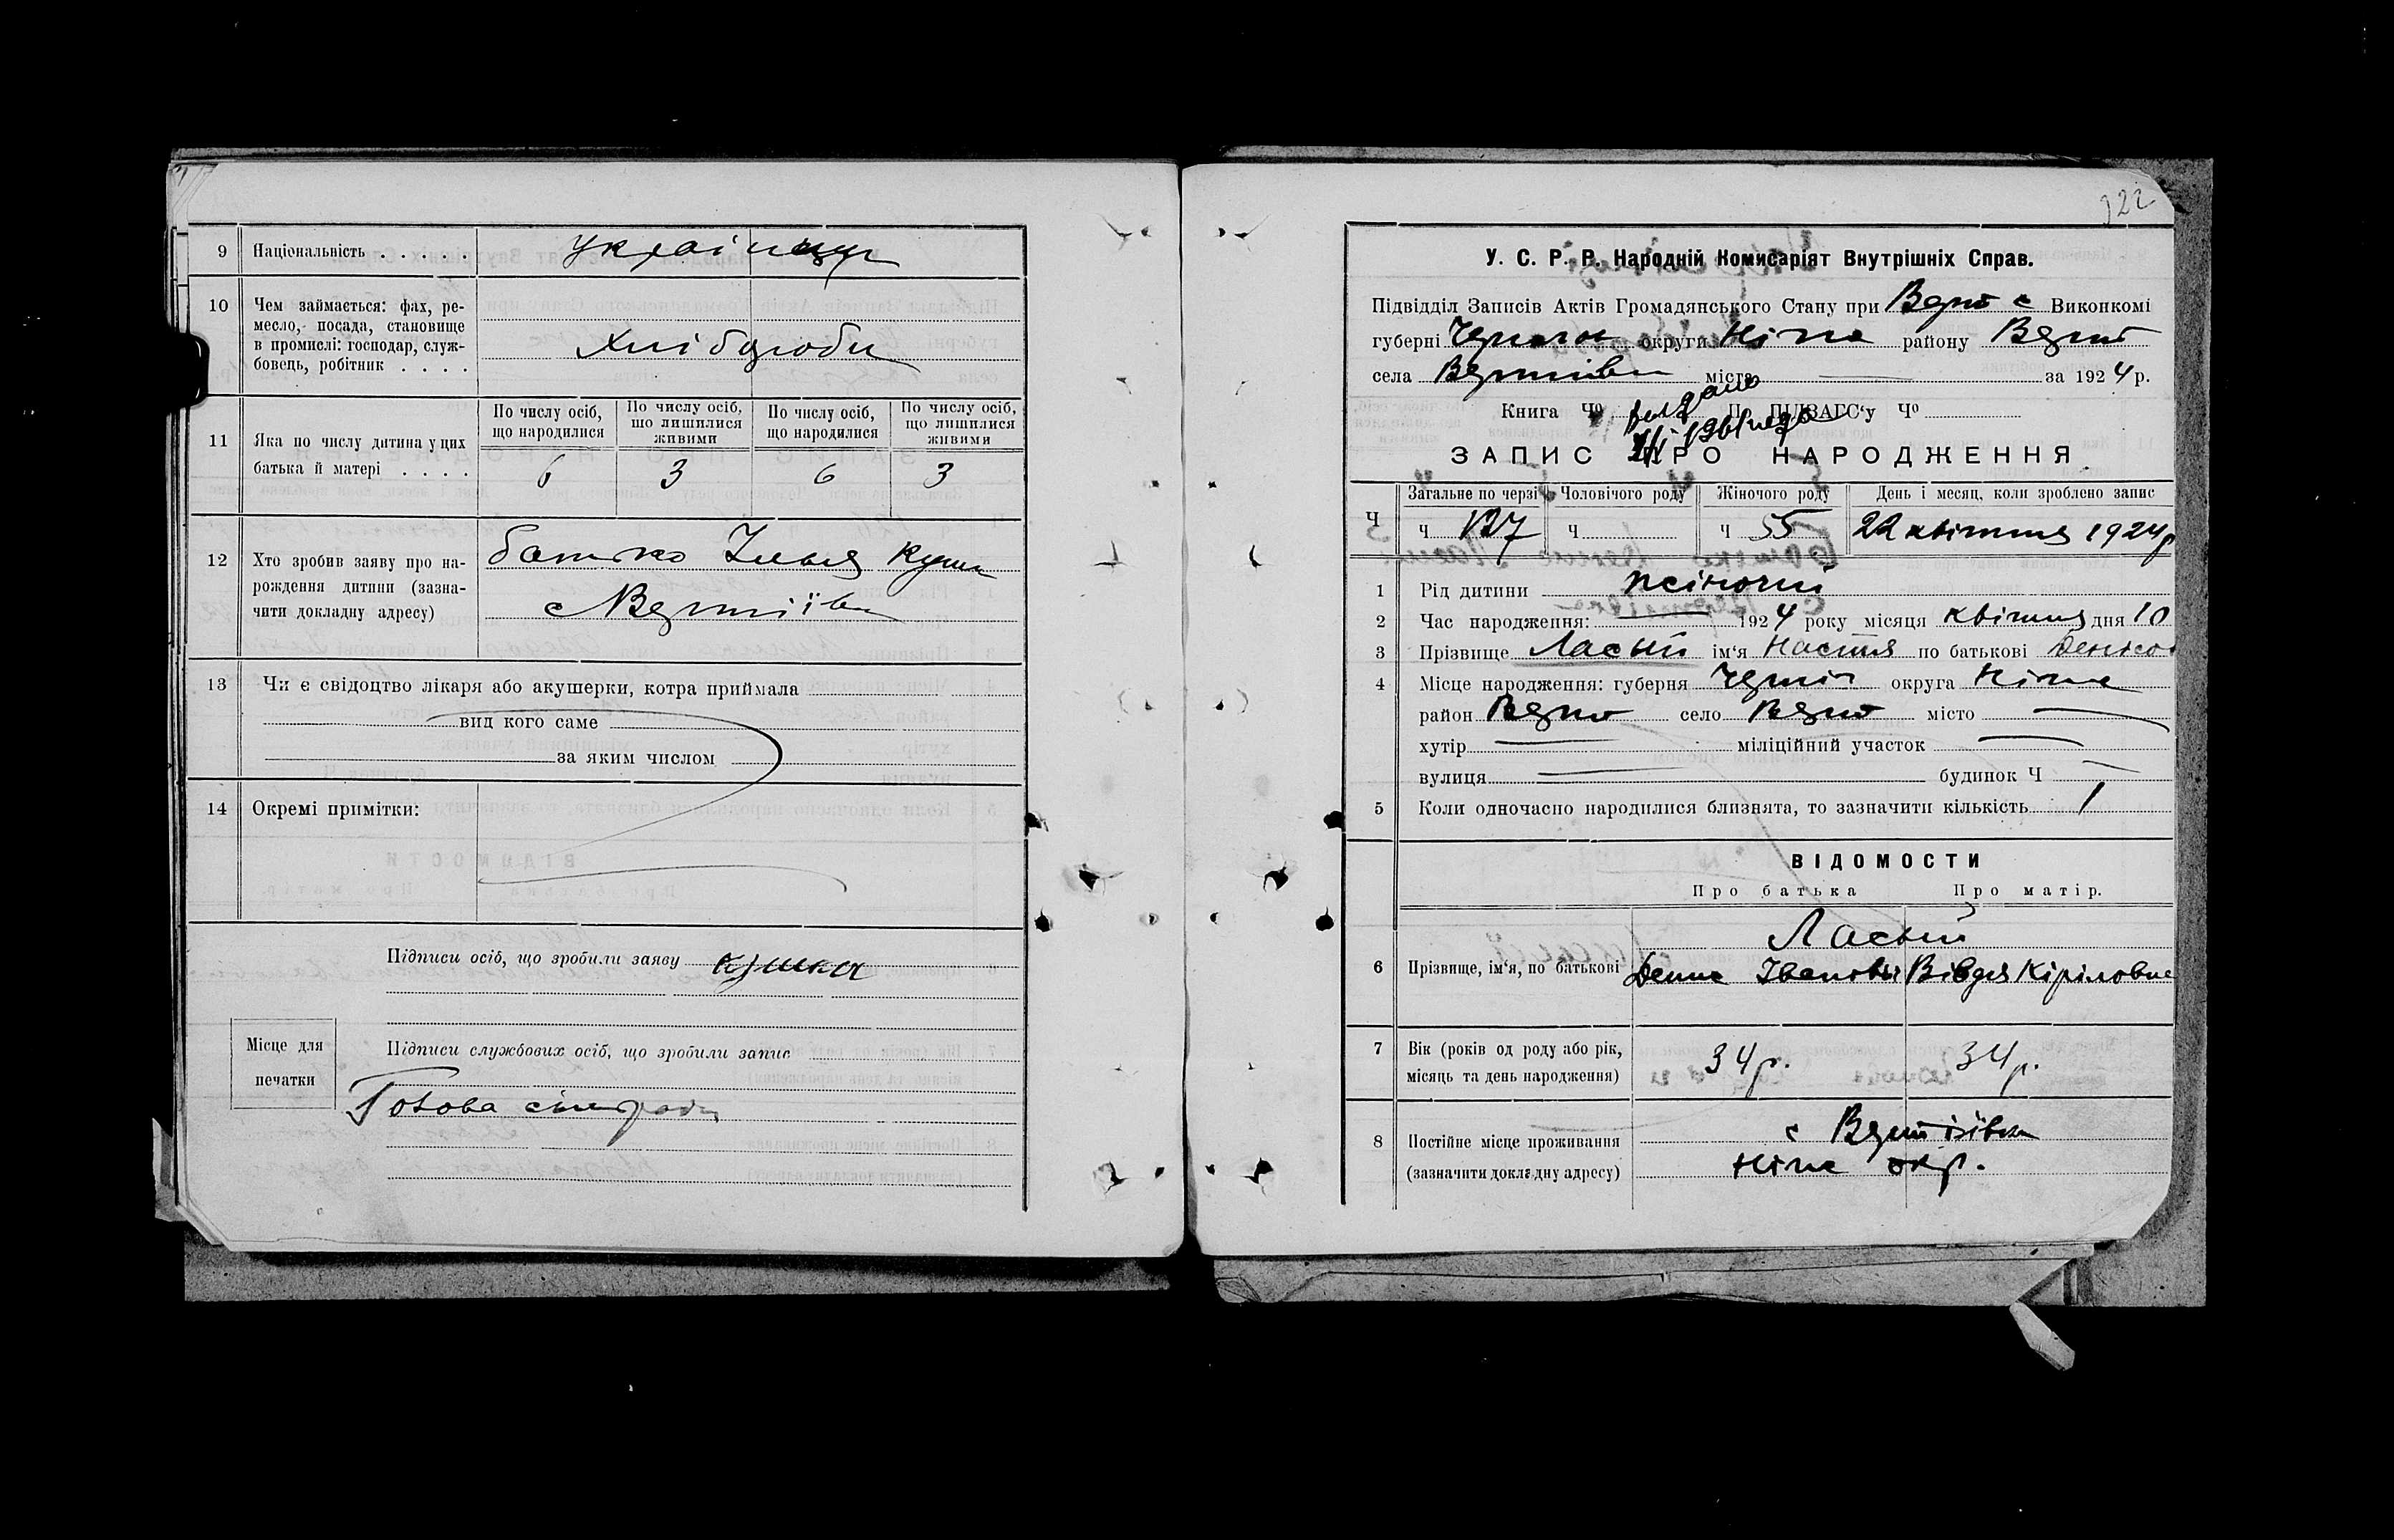 9 Національність . . . . . українці
10 Чем займається: фах, ре-
месло, посада, становище
в промислі: господар, служ-
бовець, робітник . . . . Хлібороби
11 Яка по числу дитина у цих
батька й матері . . . .
По числу осіб, що народилися
По числу осіб, що лишилися живими
По числу осіб, що народилися
По числу осіб, що лишилися живими
6 3 6 3
12 Хто зробив заяву про на-
рождення дитини (зазна-
чити докладну адресу)
батько Ілья Кушн
с Вертіївки
13 Чи є свідоцтво лікаря або акушерки, котра приймала
вид кого саме
за яким числом
14 Окремі примітки:
Підписи осіб, що зробили заяву
Місце для печатки
Підписи службових осіб, що зробили запис
Голова сільради
122
У. С. Р. Р. Народній Комисаріят Внутрішніх Справ.
Підвідділ Записів Актів Громадянського Стану при Верт с Виконкомі
губерні Черніг округи Ніжн району Верт
села Вертіївки місто за 1924 р.
Книга Чо ПІДЗАГС'у Чо
ЗАПИС ПРО НАРОДЖЕННЯ
Загальне по черзі Чоловічого роду Жіночого роду День і месяц, коли зроблено запис
Ч ч 127 ч ч 55 22 квітня 1924 р
1 Рід дитини жіночий
2 Час народження: 1924 року місяця квітня дня 10
3 Прізвище Ласый ім'я Настя по батькові Денісов
4 Місце народження: губерня Черніг округа Ніжн
район Верт село Верт місто
хутір міліційний участок
вулиця будинок Ч
5 Коли одночасно народилися близнята, то зазначити кількість 1
ВІДОМОСТИ
Про батька Про матір.
Ласый
6 Прізвище, ім'я, по батькові Денис Іванович Вівдя Кіріловна
7 Вік (років од роду або рік,
місяць та день народження) 34 р. 34 р.
8 Постійне місце проживання
(зазначити докладну адресу)
с Вертіївка
Ніжн окр.